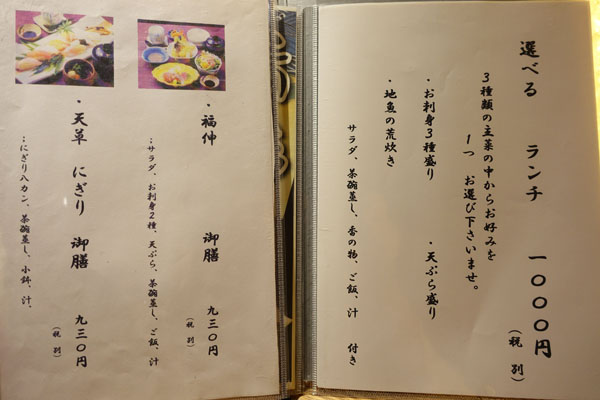 選べる　ランチ　一〇〇〇円
(税別)
３種類の主菜の中からお好みを
１つ　お選び下さいませ。
・お刺身３種盛り　・天ぷら盛り
・地魚の荒炊き
サラダ、茶碗蒸し、香の物、ご飯、汁　付き
・福伸　御膳　九三〇円
(税別)
：サラダ、お刺身２種、天ぷら、茶碗蒸し、ご飯、汁
・天草　にぎり　御膳　九三〇円
(税別)
：にぎり八カン、茶碗蒸し、小鉢、汁、